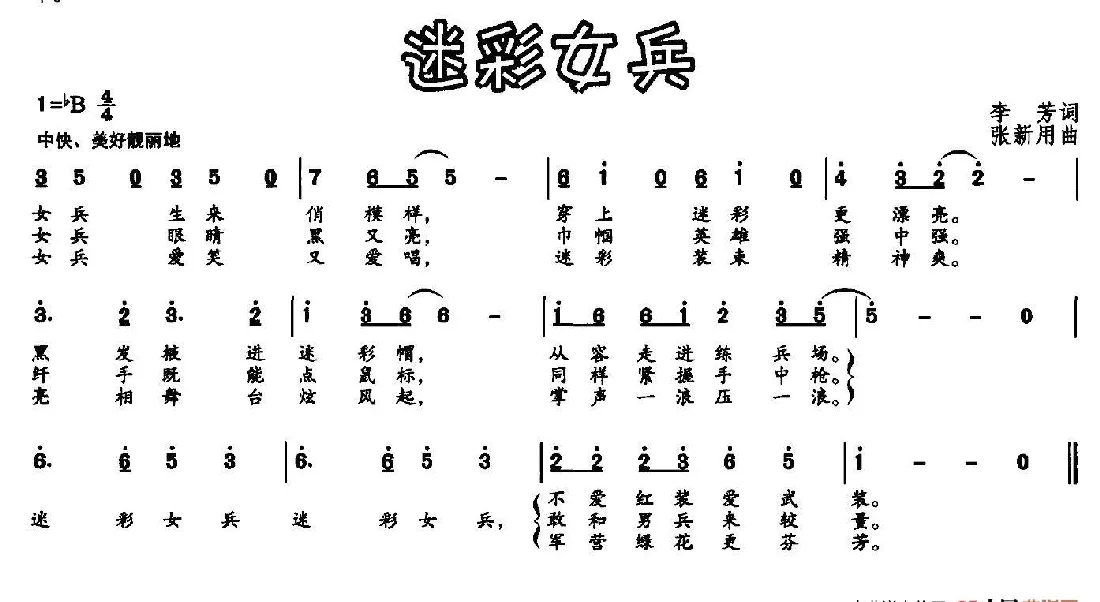 迷彩女兵
1=♭B 4/4
李 芳词
中快、美好靓丽地
张新用曲
3 5 0 3 5 0 | 7 6 5 5 - | 6 i 0 6 i 0 | 4 3 2 2 - |
女兵 生来 俏模样, 穿上 迷彩 更漂亮。
女兵 眼睛 黑又亮, 巾帼 英雄 强中强。
女兵 爱笑 又爱唱, 迷彩 装束 精神爽。
3. 2 3. 2 | i 3 6 6 - | i 6 6 i 2 3 5 | 5 - - 0 |
黑发披进迷彩帽, 从容走进练兵场。
纤手既能点鼠标, 同样紧握手中枪。
亮相舞台炫风起, 掌声一浪压一浪。
6. 6 5 3 | 6. 6 5 3 | 2 2 2 3 6 5 | i - - 0 ‖
不爱红装爱武装。
迷彩女兵迷彩女兵, 敢和男兵来较量。
军营绿花更芬芳。